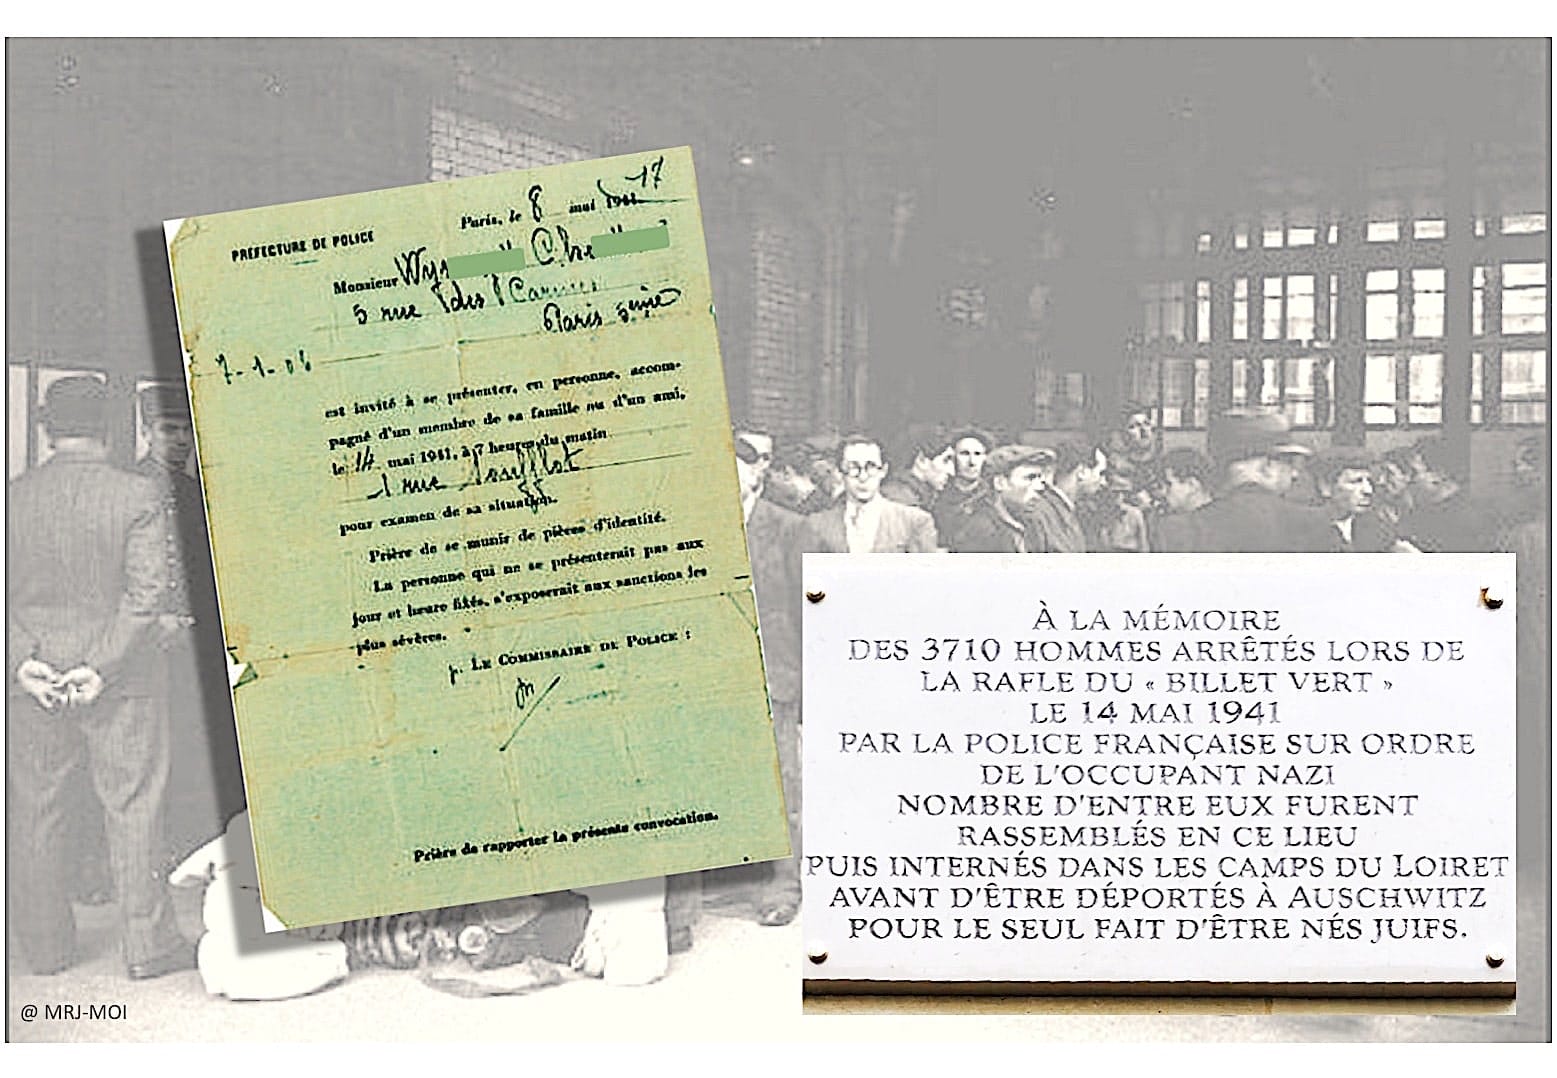 PRÉFECTURE DE POLICE
Paris, le 8 mai 17
Monsieur Wys Che
5 rue des Carmes
Paris 5ème
7-1-06
est invité à se présenter, en personne, accom-
pagné d'un membre de sa famille ou d'un ami,
le 14 mai 1941, à 7 heures du matin
1 rue Soufflot
pour examen de sa situation.
Prière de se munir de pièces d'identité.
La personne qui ne se présenterait pas aux
jour et heure fixés, s'exposerait aux sanctions les
plus sévères.
p. LE COMMISSAIRE DE POLICE :
Prière de rapporter la présente convocation.
À LA MÉMOIRE
DES 3710 HOMMES ARRÊTÉS LORS DE
LA RAFLE DU « BILLET VERT »
LE 14 MAI 1941
PAR LA POLICE FRANÇAISE SUR ORDRE
DE L'OCCUPANT NAZI
NOMBRE D'ENTRE EUX FURENT
RASSEMBLÉS EN CE LIEU
PUIS INTERNÉS DANS LES CAMPS DU LOIRET
AVANT D'ÊTRE DÉPORTÉS À AUSCHWITZ
POUR LE SEUL FAIT D'ÊTRE NÉS JUIFS.
@ MRJ-MOI